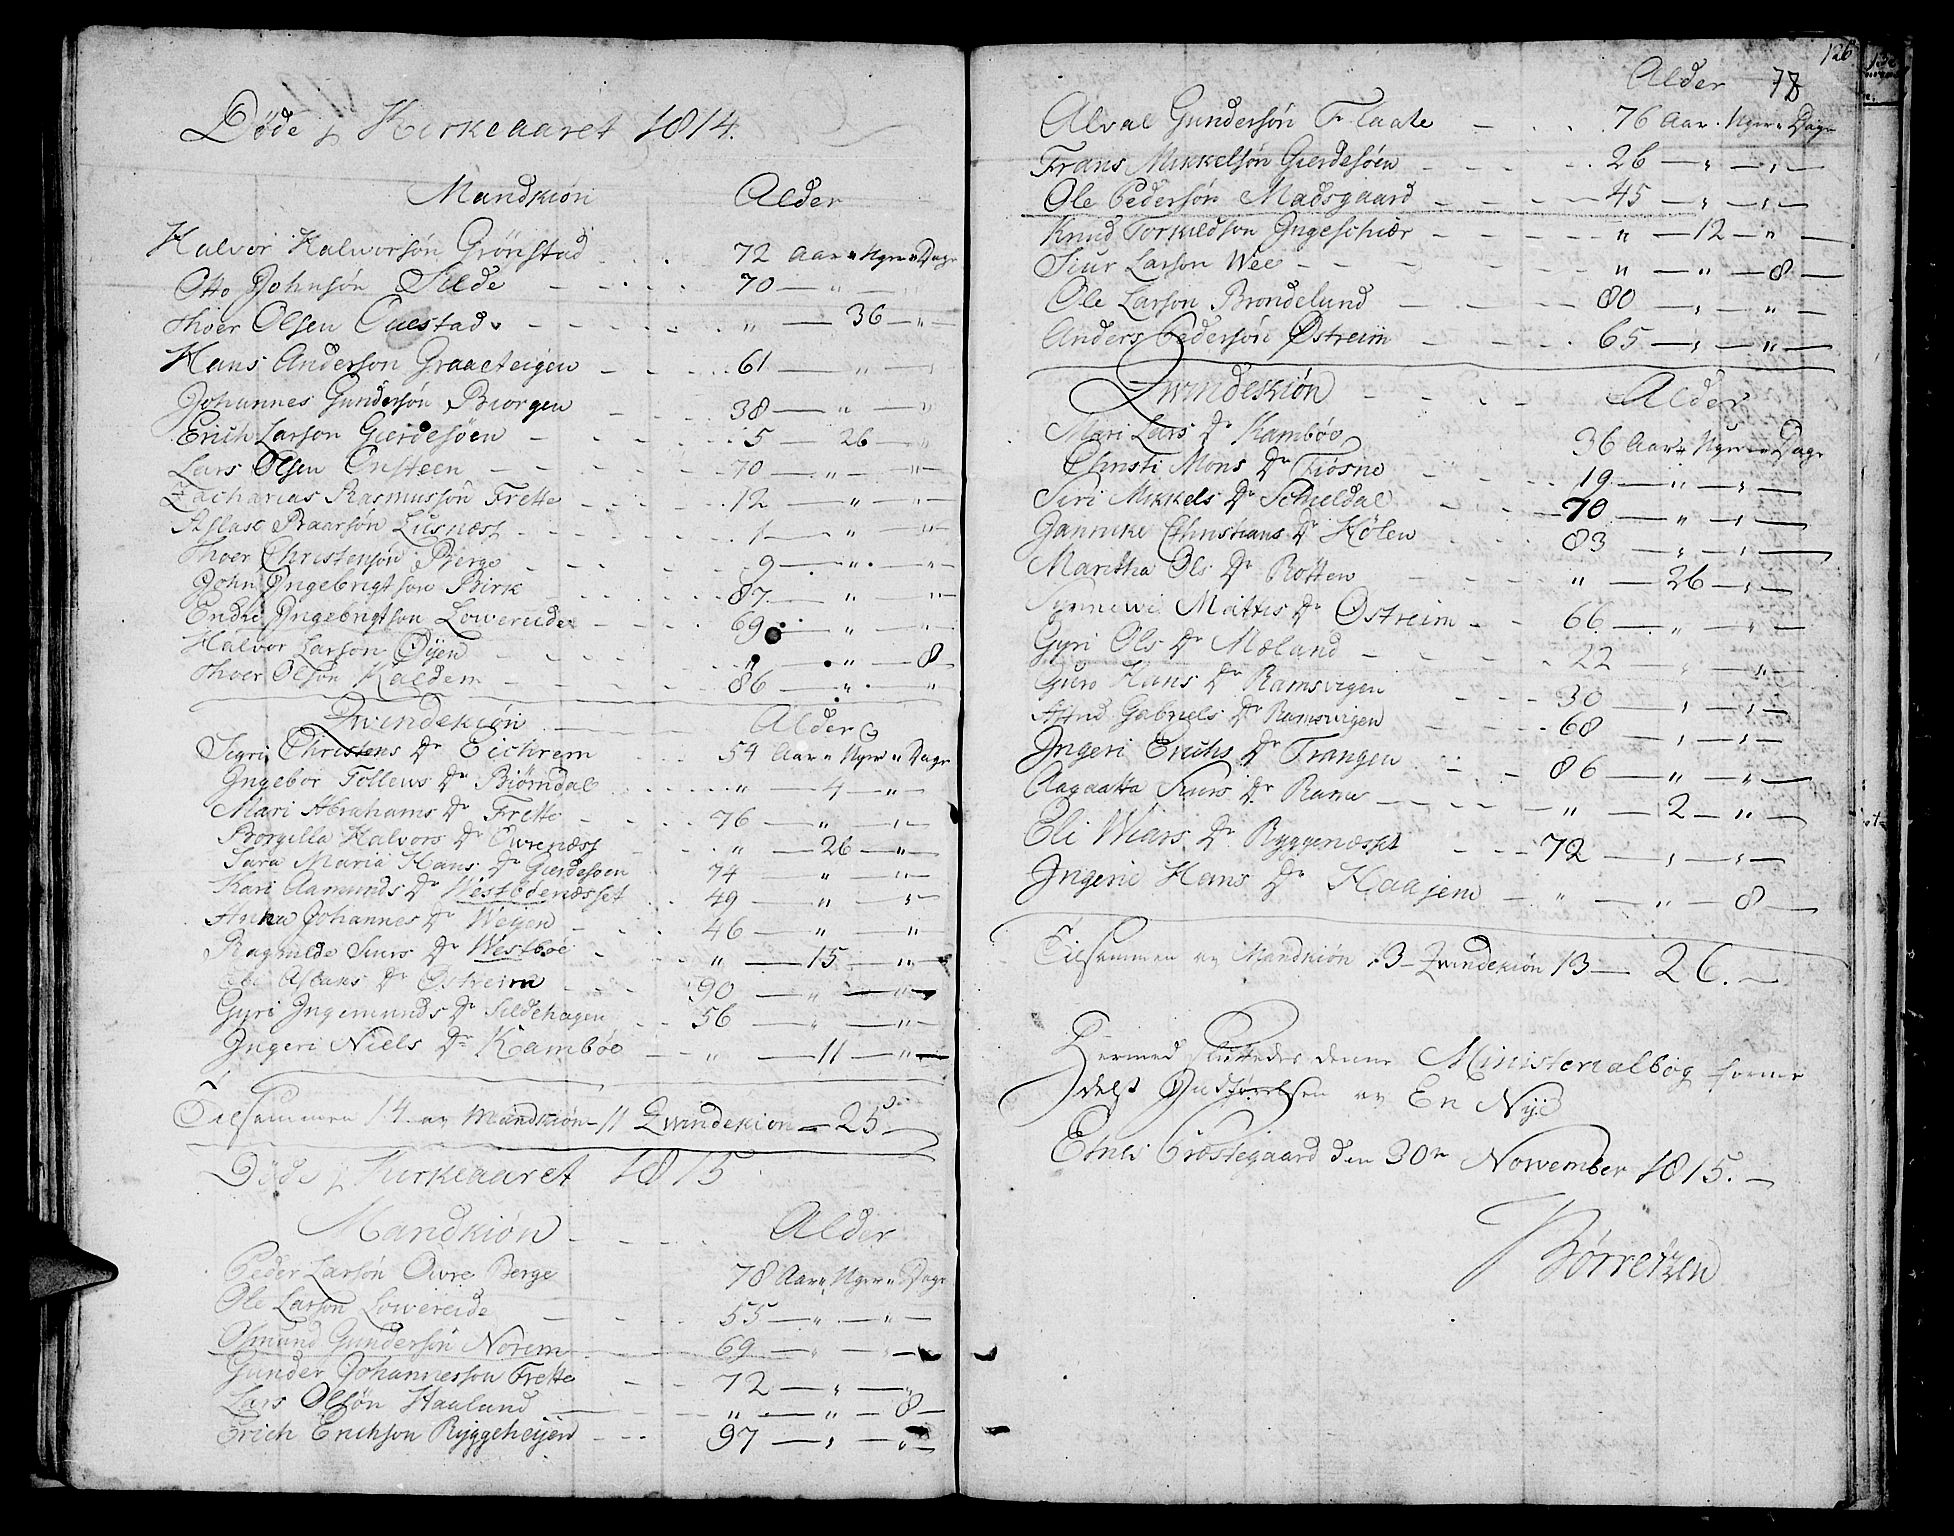 Døde j Kirkeaaret 1814.
Mandkiøn Alder
Halvor Halworsøn Grønstad - - - 72 Aar " Uger " Dage
Otto Johnsøn Silde - - - 70 — " —
Thoer Olsen Questad - - - " — 36 — " —
Hans Anderson Graaeteigen - - - 61 — " —
Johannes Gundersøn Biorgen - - - 38 — " — "
Erich Larson Gierdesøen - - - 5 — 26 — "
Lars Olsen Ensteen - - - 70 — " — " —
Zacharias Rasmussøn Frette - - - 12 — " — " —
Aslak Baarsøn Lusnæss - - - 1 — " — " —
Thoer Christensøn Berge - - - 9 — " — " —
John Jngebrigtson Birk - - - 87 — " — " —
Endre Jngebrigtson Lowereide - - - 69 — " — " —
Halvor Larson Øyen - - - " — " — 8 —
Thoer Olsøn Kaldem - - - 86 — " — "
Qvindekiøn Alder
Sigri Christens Dr Eichrem - - - 54 Aar " Uger " Dage
Jngebor Tollews Dr Biørndal - - - " — 4 — " —
Mari Abrahams Dr Frette - - - 76 — " — " —
Borgilla Halvors Dr Øvrenæss - - - " — 26 — " —
Sara Maria Hans Dr Gierdesøen 74 — " — " —
Kari Aamunds Dr Westbøenæsset - - 49 — " — " —
Anna Johannes Dr Weyen - - - 46 — " — "
Ragnilde Siurs Dr Westbøe - - - " — 15 — " —
Eli Aslaks Dr Østreim - - - 90 — " — " —
Gyri Jngemunds Dr Sildehagen - - 56 — " — " —
Jngeri Niels Dr Kambøe - - - " — 11 — " —
Tilsammen 14 av Mandkiøn 11 Qvindekiøn — 25 —
Døde j Kirkeaaret 1815
Mandkiøn - - - Alder
Peder Larsøn Øwre Berge 78 Aar " Uger " Dage
Ole Larson Lowereide - - - 55 — " — " —
Osmund Gundersøn Norem - - - 69 — " — " —
Gunder Johannerson Frette - - 72 — " — "
Lars Olsøn Haaland - - - " — " — 8 —
Erich Erichson Ryggeheijen - - - 97 — " — " —
126
Alder 78
Alval Gundersøn Flaate - - - 76 Aar " Uger " Dage
Frans Mikkelsøn Gierdesøen - - - 26 — " — " —
Ole Pedersøn Madsgaard - - - 45 — " — " —
Knud Torkildson Jngeschiær - - - " — 12 — " —
Siur Larson Wee - - - " — " — 8 —
Ole Larson Brondelund - - - 80 — " — " —
Anders Pedersøn Østreim - - - 65 — " — " —
Qvindeskiøn - - - Alder
Mari Lars Dr Kambøe 36 Aar " Uger " Dage
Christi Mons Dr Fiøsne - - - 19 — " — " —
Siri Mikkels Dr Schieldal - - - 70 — " — " —
Jannike Christians Dr Hølen - - - 83 — " — " —
Maritha Ols Dr Rotten - - - " — 26 — " —
Synnewe Mattis Dr Østreim - - 66 — " — " —
Gyri Ols Dr Mæland - - - 22 — " — " —
Guro Hans Dr Ramsvigen - - - 30 — " — " —
Gabriels Dr Ramsvigen - - - 68 — " — " —
Jngeri Erichs Dr Frangen - - - 86 — " — " —
Aagaatta Siurs Dr Rame - - - " — 2 — " —
Eli Wiars Dr Ryggenæsset - - - 72 — " — " —
Jngerie Hans Dr Haajem - - " — " — 8 —
Tilsammen av Mandkiøn 13 Qvindekiøn 13 — 26. —
Hermed sluttedes denne Ministerialbog forme
delst Jndførelsen av En Nye
Etnes Præstegaard den 30n Nowember 1815. —
Børretzen